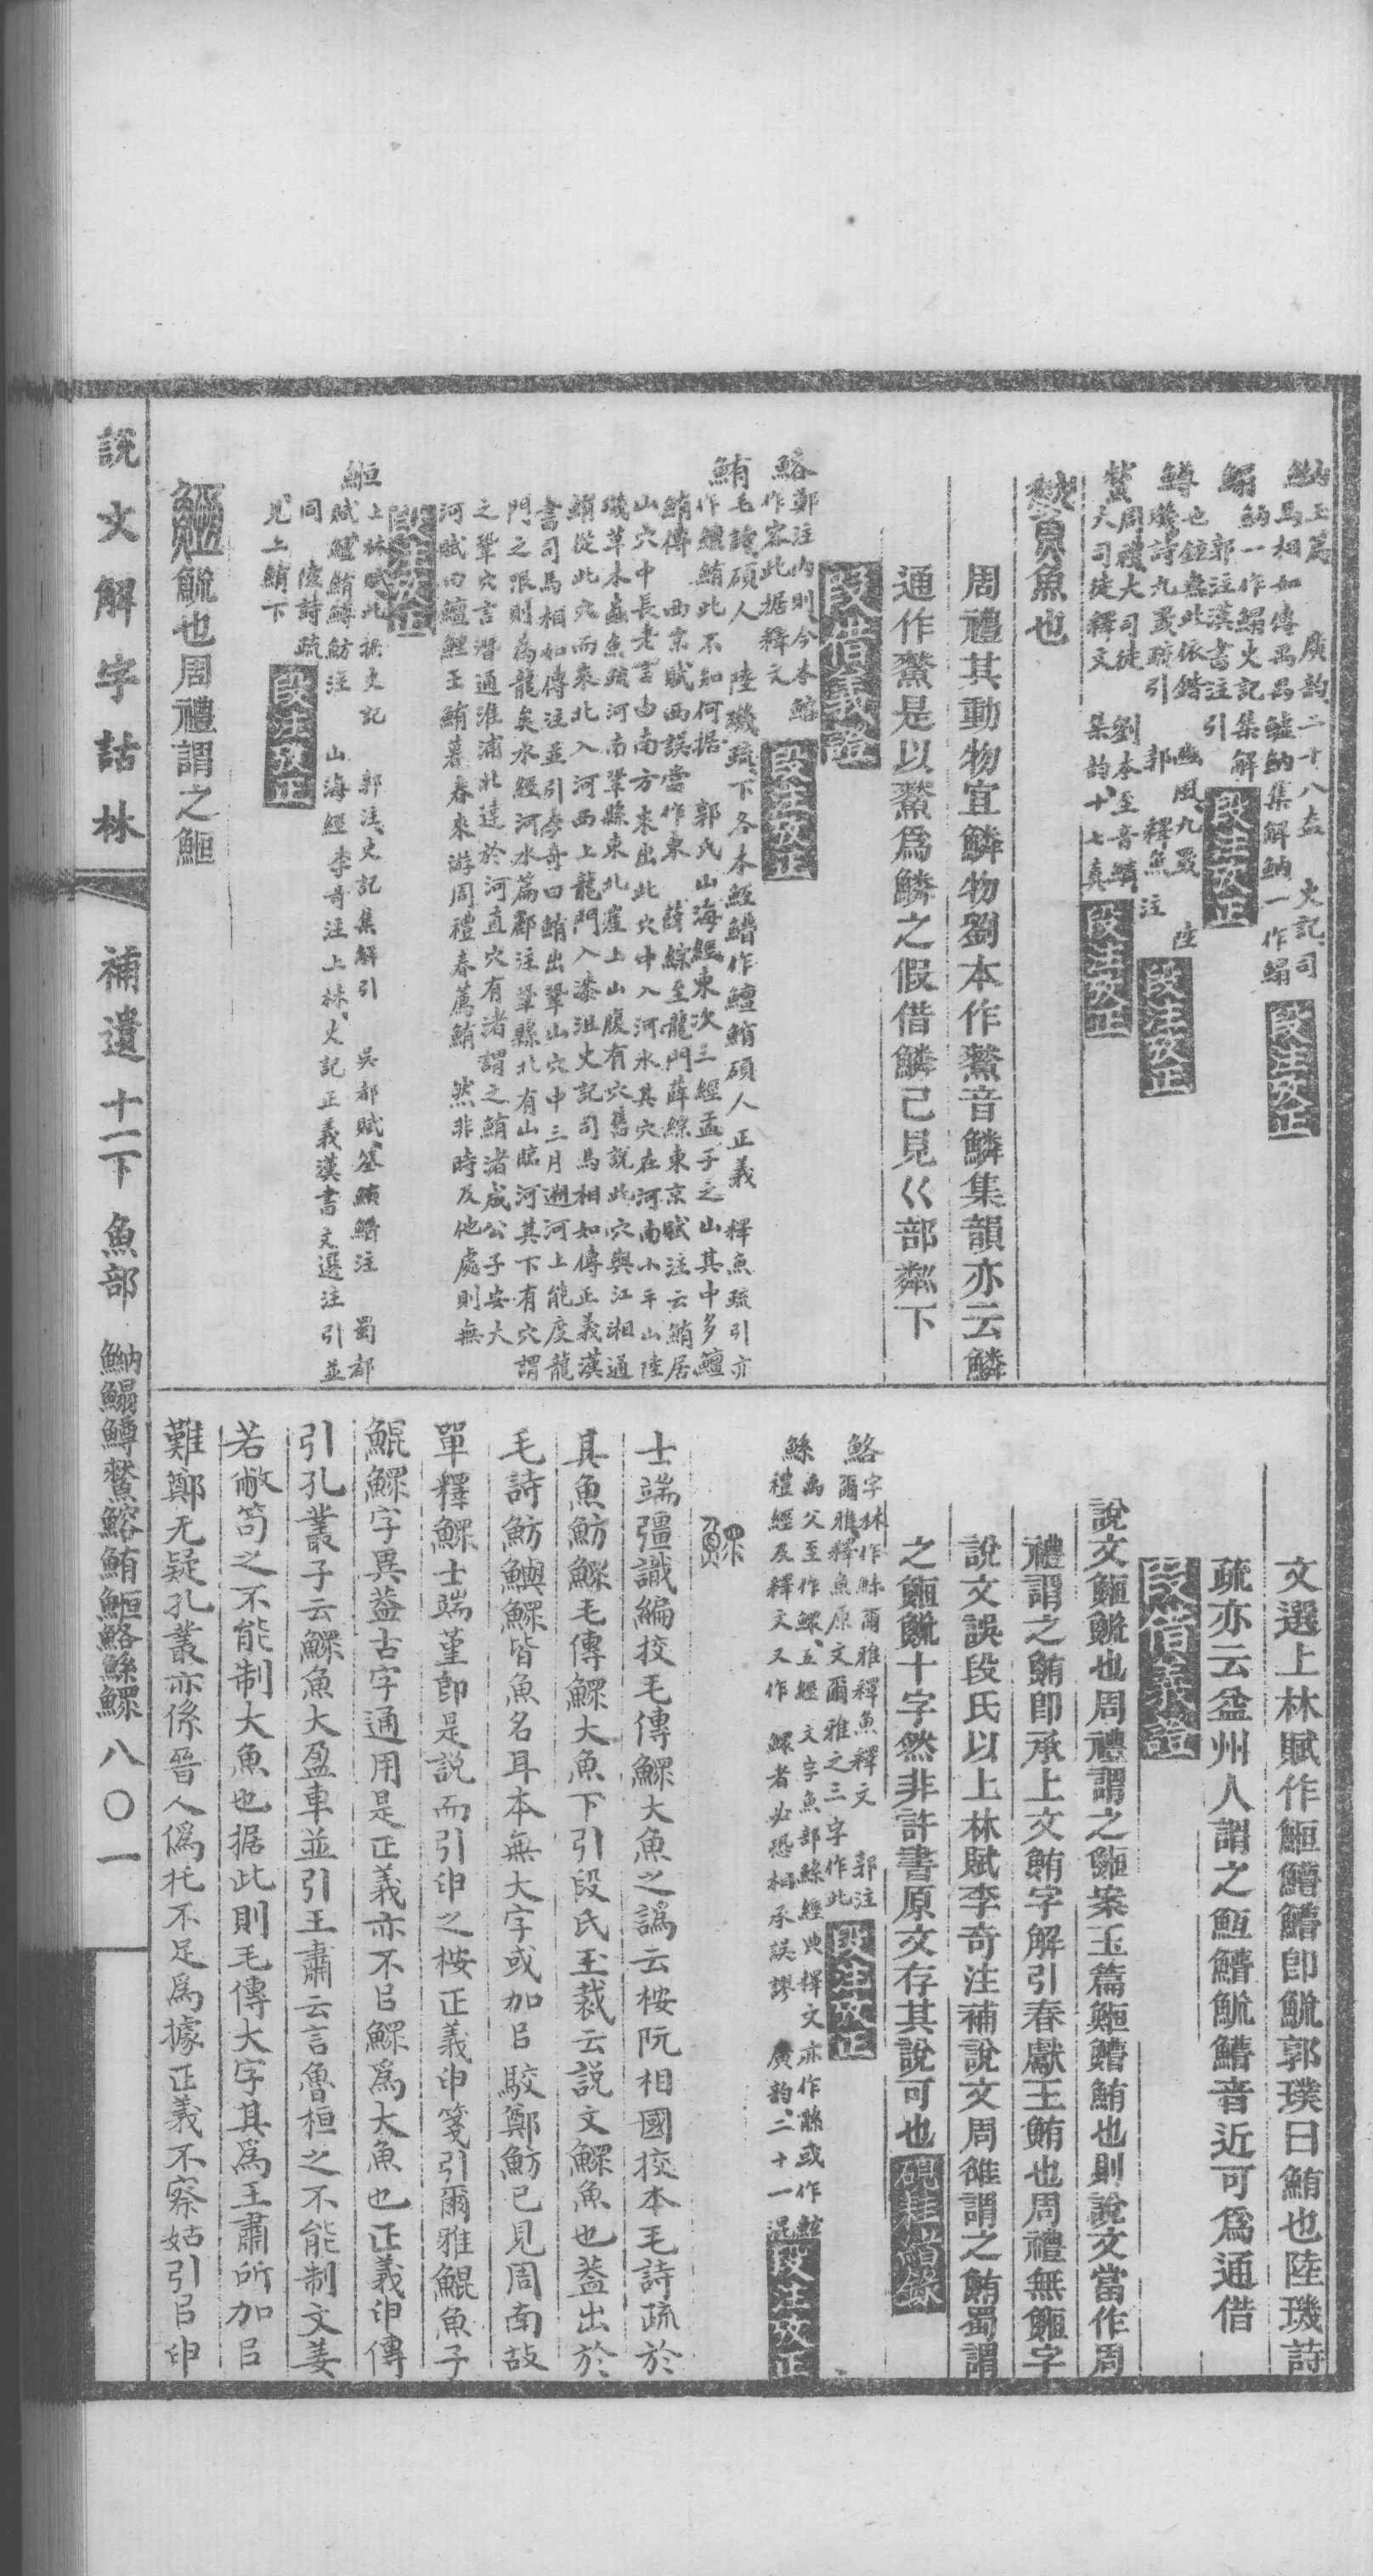 魶 玉篇 廣韵、二十八盍 史記、司
馬相如傳禺禺鱋魶集解魶一作鰨 段注攷正
鰨 魶一作鰨史記集解
郭注漢書注引 段注攷正
鱒 也鉉無此依鍇 豳風、九罭 陸
璣詩九罭疏引 郭 釋魚 注 段注攷正
䲉 周禮大司徒 劉本至音鱗
大司徒釋文 集韵、十七真 段注攷正
魚也
周禮其動物宜鱗物劉本作䲉音鱗集韻亦云鱗
通作䲉是以䲉爲鱗之假借鱗已見巜部粼下
段借義證
鰫 鄭注內則今本鰫
作容此据釋文 段注攷正
鮪 毛詩、碩人 陸璣疏、下各本經鱣作鱣鮪碩人正義 釋魚疏引亦
作鱣鮪此不知何据 郭氏山海經東次三經孟子之山其中多鱣
鮪傳 西京賦西誤當作東 薛綜至龍門薛綜東京賦注云鮪居
山穴中長老言由南方來出此穴中入河水其穴在河南小平山陸
璣草木蟲魚疏河南鞏縣東北崖上山腹有穴舊說此穴與江湖通
鮪從此穴而來北入河西上龍門入漆沮史記司馬相如傳正義漢
書司馬相如傳注並引李奇曰鮪出鞏山穴中三月遡河上能度龍
門之限則爲龍矣水經河水篇酈注鞏縣北有山臨河其下有穴謂
之鞏穴言潛通淮浦北達於河直穴有渚謂之鮪渚成公子安大
河賦曰鱣鯉王鮪暮春來游周禮春薦鮪 然非時及他處則無
段注攷正
䱭 上林賦此據史記 郭注、史記集解引 吳都賦、筌䱭鰽注 蜀都
賦、鱣鮪鱒魴注 山海經李奇注上林、史記正義漢書文選注引並
同 陸詩疏
見上鮪下 段注攷正
䱭 䱴也周禮謂之䱭
文選上林賦作䱭鰽鰽卽䱴郭璞曰鮪也陸璣詩
疏亦云益州人謂之䱭鰽䱴鰽音近可爲通借
段借義證
說文䱭䱴也周禮謂之䱭案玉篇䱭鰽鮪也則說文當作周
禮謂之鮪卽承上文鮪字解引春獻王鮪也周禮無䱭字
說文誤段氏以上林賦李奇注補說文周雒謂之鮪蜀謂
之䱭䱴十字然非許書原文存其說可也
鮥 字林作䱃爾雅釋魚釋文 郭注
爾雅、釋魚原文爾雅之三字作此 段注攷正
鯀 禹父至作鰥、五經文字魚部鯀經典釋文亦作鯀或作鮌
禮經及釋文又作 鰥者必恐相承誤謬 廣韵、二十一混 段注攷正
鰥
士端彊識編挍毛傳鰥大魚之譌云桉阮相國挍本毛詩疏於
其魚魴鰥毛傳鰥大魚下引段氏玉裁云説文鰥魚也葢出於
毛詩魴鱮鰥皆魚名耳本無大字或加㠯駁鄭魴已見周南故
單釋鰥士端堇卽是説而引申之桉正義申箋引爾雅鯤魚子
鯤鰥字異葢古字通用是正義亦不㠯鰥爲大魚也正義申傳
引孔叢子云鰥魚大盈車並引王肅云言魯桓之不能制文姜
若敝笱之不能制大魚也据此則毛傳大字其爲王肅所加㠯
難鄭无疑孔叢亦係晉人僞托不足爲據正義不察姑引㠯申
說文解字詁林
補遺 十一下 魚部 魶鰨鱒䲉鰫鮪䱭鮥鯀鰥 八〇一